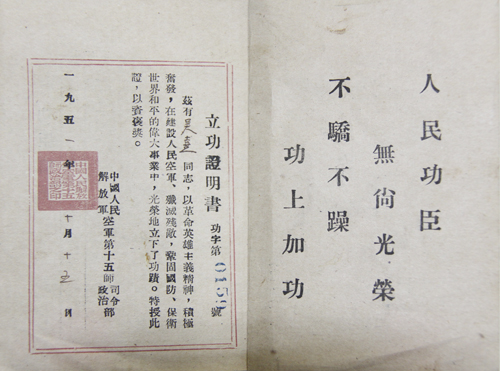 人民功臣
無尚光榮
不驕不躁
功上加功
立功證明書 功字第 0159 號
茲有吳 同志，以革命英雄主義精神，積極
奮發，在建設人民空軍、殲滅殘敵，鞏固國防、保衛
世界和平的偉大事業中，光榮地立下了功蹟。特授此
證，以資褒獎。
中國人民
解放軍空軍第十五師司令部
政治部
一九五一年十月十五日